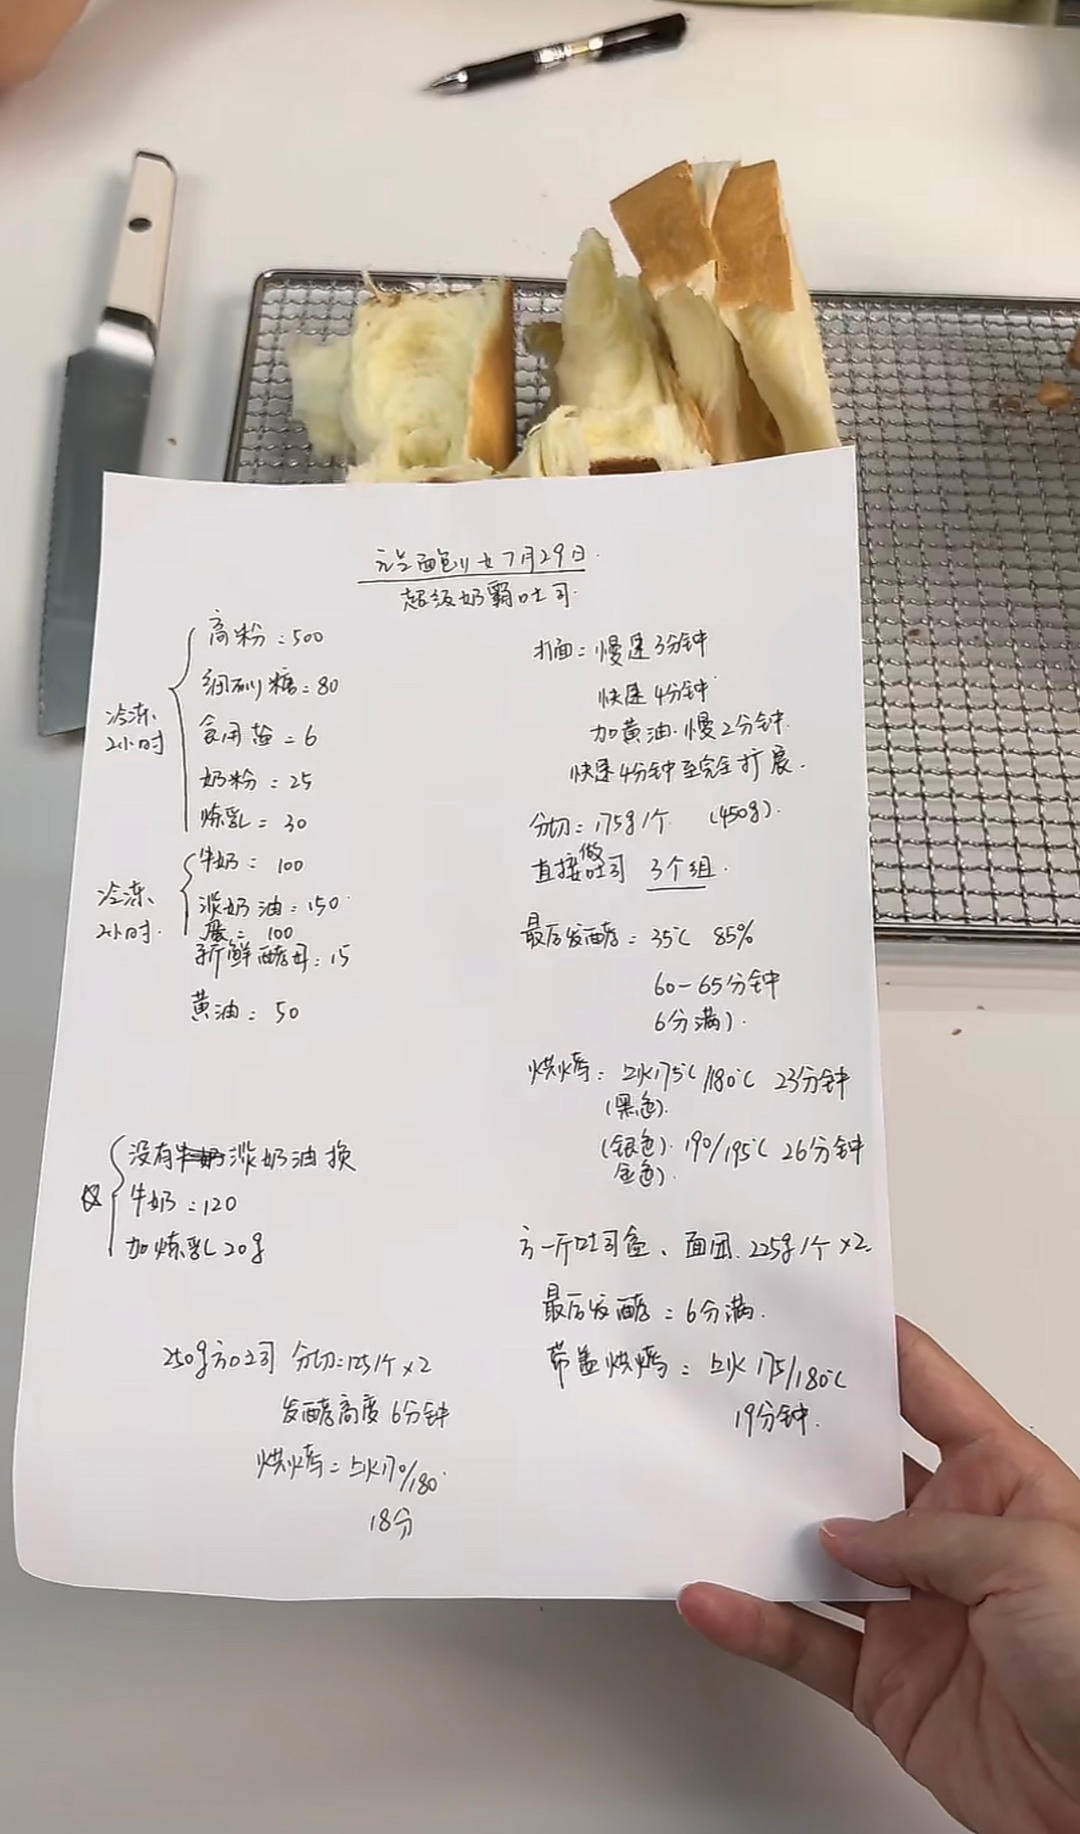 面包 7月29日
超级奶霸吐司
冷冻
2小时
高粉:500
细砂糖:80
食用盐:6
奶粉:25
炼乳:30
冷冻
2小时
牛奶:100
淡奶油:150
蛋:100
新鲜酵母:15
黄油:50
没有淡奶油换
牛奶:120
加炼乳20g
250g方吐司 分切:125/个×2
发酵高度6分钟
烘烤:上火170/180
18分
打面:慢速3分钟
快速4分钟
加黄油.慢2分钟.
快速4分钟至完全扩展.
分切:175g/个 (450g).
直接做吐司 3个组.
最后发酵:35℃ 85%
60-65分钟
6分满).
烘烤:上火175℃/180℃ 23分钟
(黑色).
(银色). 190/195℃ 26分钟
金色).
方一斤吐司盒、面团.225g/个×2.
最后发酵:6分满.
带盖烘烤:上火175/180℃
19分钟.